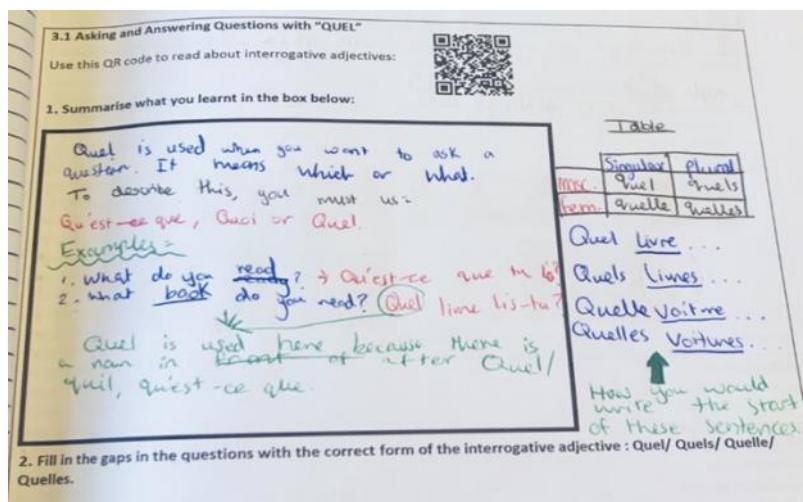 3.1 Asking and Answering Questions with "QUEL"
Use this QR code to read about interrogative adjectives:
1. Summarise what you learnt in the box below:
Quel is used when you want to ask a
question. It means which or what.
To describe this, you must us:
Qu'est-ce que, Quoi or Quel.
Examples:
1. What do you read? → Qu'est-ce que tu lis?
2. what book do you read? Quel livre lis-tu?
Quel is used here because there is
a noun in front of after Quel/
quil, qu'est-ce que.
Table
Singular Plural
masc. quel quels
fem. quelle quelles
Quel livre...
Quels livres...
Quelle voiture...
Quelles voitures...
How you would
write the start
of these sentences
2. Fill in the gaps in the questions with the correct form of the interrogative adjective : Quel/ Quels/ Quelle/
Quelles.